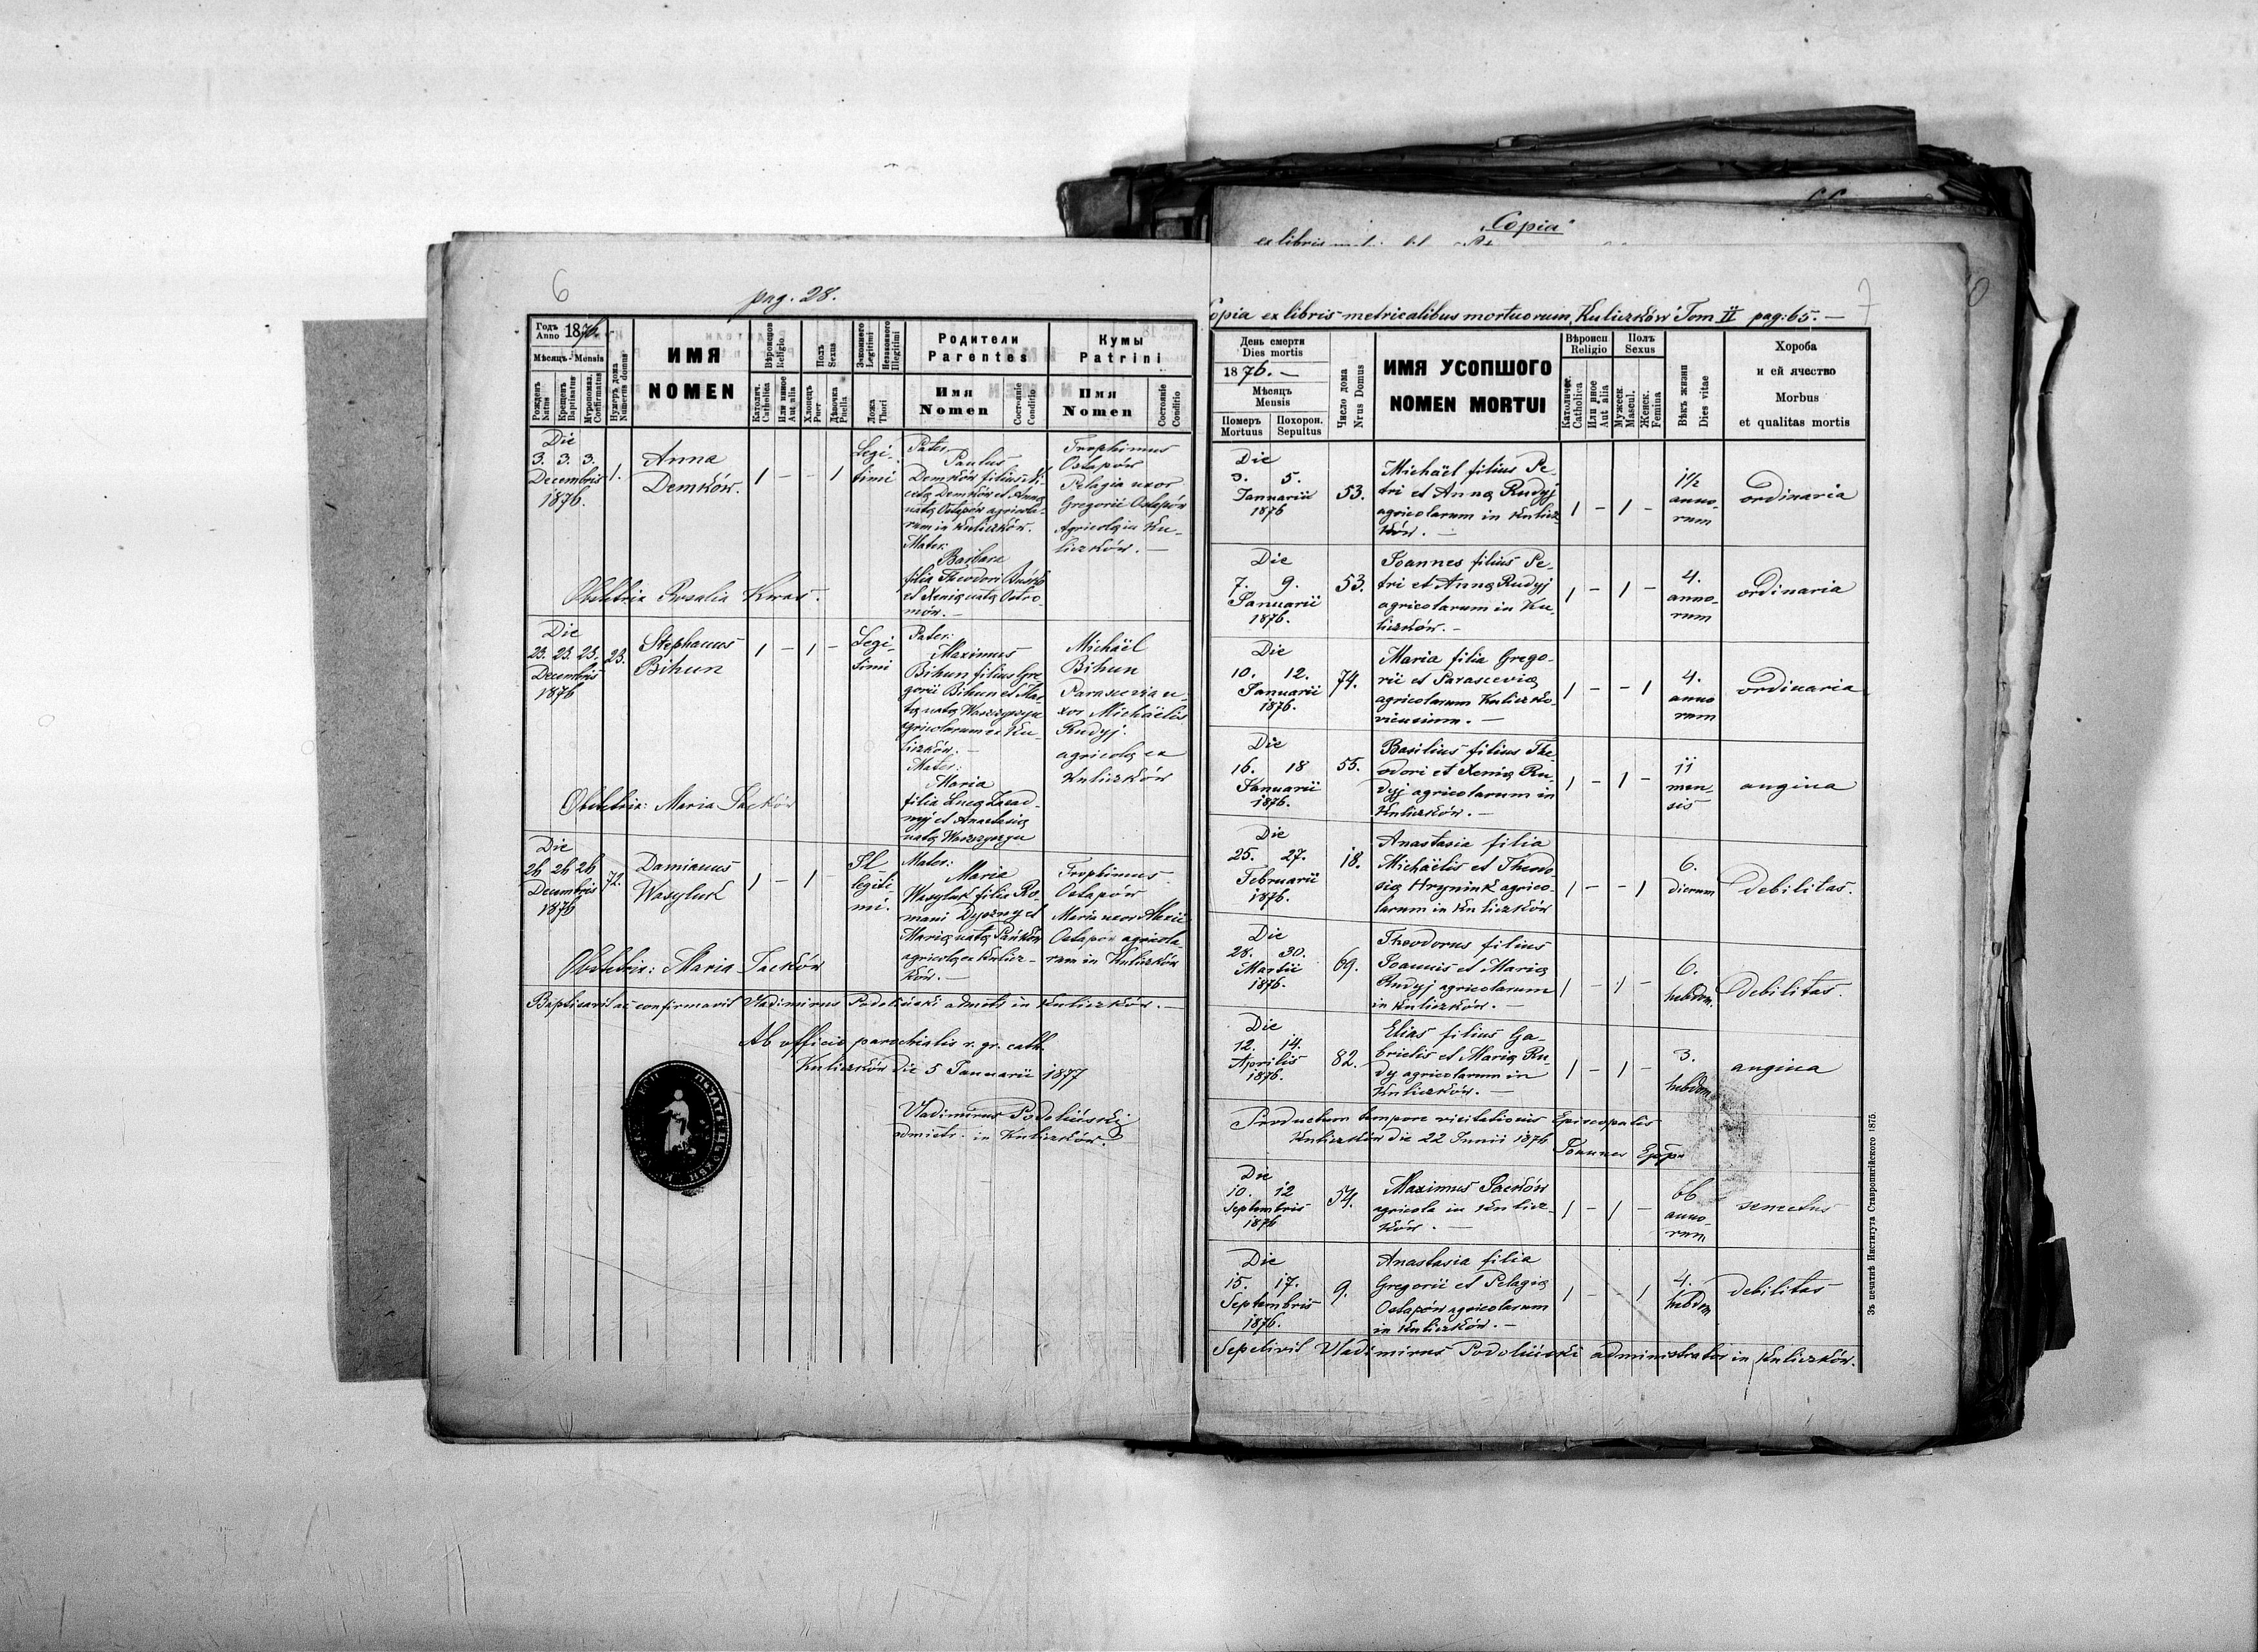 „Copia"
6
pag. 28.
Годъ
Anno 1876.
Мѣсяць - Mensis
Рожденъ
Natus
Крещенъ
Baptisatus
Муропомаз.
Confirmatus
Нумеръ дома
Numerus domus
ИМЯ
NOMEN
Вѣроиспов
Religio
Католич.
Catholica
Или иное
Aut alia
Полъ
Sexus
Хлопецъ
Puer
Дѣвочка
Puella
Законного
Legitimi
Незаконного
Illegitimi
Ложа
Thori
Родители
Parentes
Имя
Nomen
Состояніе
Conditio
Кумы
Patrini
Имя
Nomen
Состояніе
Conditio
Die
3. 3. 3.
Decembris
1876.
1.
Anna
Demków.
1 - - 1
Legi-
timi
Pater:
Paulus
Demków filius Ni-
cetæ Demków et Annæ
natæ Ostapów agricola-
rum in Kuliczków.
Mater:
Barbara
filia Theodori
et Xeniæ natæ Ostro-
mów.
Trophimus
Ostapów
Pelagia uxor
Gregorii Ostapów
Agricolæ in Ku-
liczków. —
Obstetrix Rosalia Kwas.
Die
23. 23. 23.
Decembris
1876
23.
Stephanus
Bihun
1 - 1 -
Legi-
timi
Pater:
Maximus
Bihun filius Gre-
gorii Bihun et Mar-
tæ natæ Waszczyszyn
agricolarum ex Ku-
liczków. —
Mater:
Maria
filia Lucæ Zasad-
nyj et Anastasiæ
natæ Waszczyszyn
Michaël
Bihun
Parascevia u-
xor Michaëlis
Rudyj.
agricolæ ex
Kuliczków
Obstetrix: Maria Packów
Die
26 26 26
Decembris
1876
72.
Damianus
Wasyluk
1 - 1 -
Il
legiti-
mi.
Mater:
Maria
Wasyluk filia Ro-
mani et
Mariæ natæ Pańków
agricolæ ex Kulicz-
ków. —
Trophimus
Ostapów
Maria uxor Alexii
Ostapów agricola-
rum in Kuliczków
Obstetrix: Maria Packów
Baptisavit ac confirmavit Vladimirus Podoliński admstr in Kuliczków. —
Ab officio parochialis r. gr. cath.
Kuliczków Die 5 Januarii 1877
Vladimirus Podoliński
admistr. in Kuliczków.
7
Copia ex libris metricalibus mortuorum, Kuliczków Tom II pag: 65. —
День смерти
Dies mortis
1876. —
Мѣсяць
Mensis
Померъ
Mortuus
Похорон.
Sepultus
Число дома
Nrus Domus
ИМЯ УСОПШОГО
NOMEN MORTUI
Вѣроисп.
Religio
Католичес.
Catholica
Или иное
Aut alia
Полъ
Sexus
Мужеск.
Mascul.
Женск.
Femina
Вѣкъ жизни
Dies vitae
Хороба
и ей ячество
Morbus
et qualitas mortis
Die
3. 5.
Januarii
1876
53.
Michaël filius Pe-
tri et Annæ Rudyj
agricolarum in Kulicz-
ków. —
1 - 1 -
1½
anno-
rum
ordinaria
Die
7. 9.
Januarii
1876.
53.
Joannes filius Pe-
tri et Annæ Rudyj
agricolarum in Ku-
liczków. —
1 - 1 -
4.
anno-
rum
ordinaria
Die
10. 12.
Januarii
1876.
74.
Maria filia Grego-
rii et Parasceviæ
agricolarum Kuliczko-
viensium. —
1 - - 1
4.
anno
rum
ordinaria
Die
16. 18
Januarii
1876.
55.
Basilius filius The-
odori et Xeniæ Ru-
dyj agricolarum in
Kuliczków. —
1 - 1 -
11
men-
sis
angina
Die
25. 27.
Februarii
1876.
18.
Anastasia filia
Michaëlis et Theodo-
siæ Hryniuk agrico-
larum in Kuliczków
1 - - 1
6.
dierum
debilitas.
Die
28. 30.
Martii
1876.
69.
Theodorus filius
Joannis et Mariæ
Rudyj agricolarum
in Kuliczków. —
1 - 1 -
6.
hebdom.
debilitas.
Die
12. 14.
Aprilis
1876.
82.
Elias filius Ga-
brielis et Mariæ Ru-
dy agricolarum in
Kuliczków. —
1 - 1 -
3.
hebdom
angina
Productum tempore visitationis Episcopalis
Kuliczków die 22 Junii 1876
Joannes Eppus
Die
10. 12
Septembris
1876
54.
Maximus Packów
agricola in Kulicz-
ków. —
1 - 1 -
66
anno-
rum
senectus
Die
15. 17.
Septembris
1876.
9.
Anastasia filia
Gregorii et Pelagiæ
Ostapów agricolarum
in Kuliczków. —
1 - 1
4.
hebdom
debilitas
Sepelivit Vladimirus Podoliński administrator in Kuliczków.
Зъ печатнѣ Института Ставропигійского 1875.